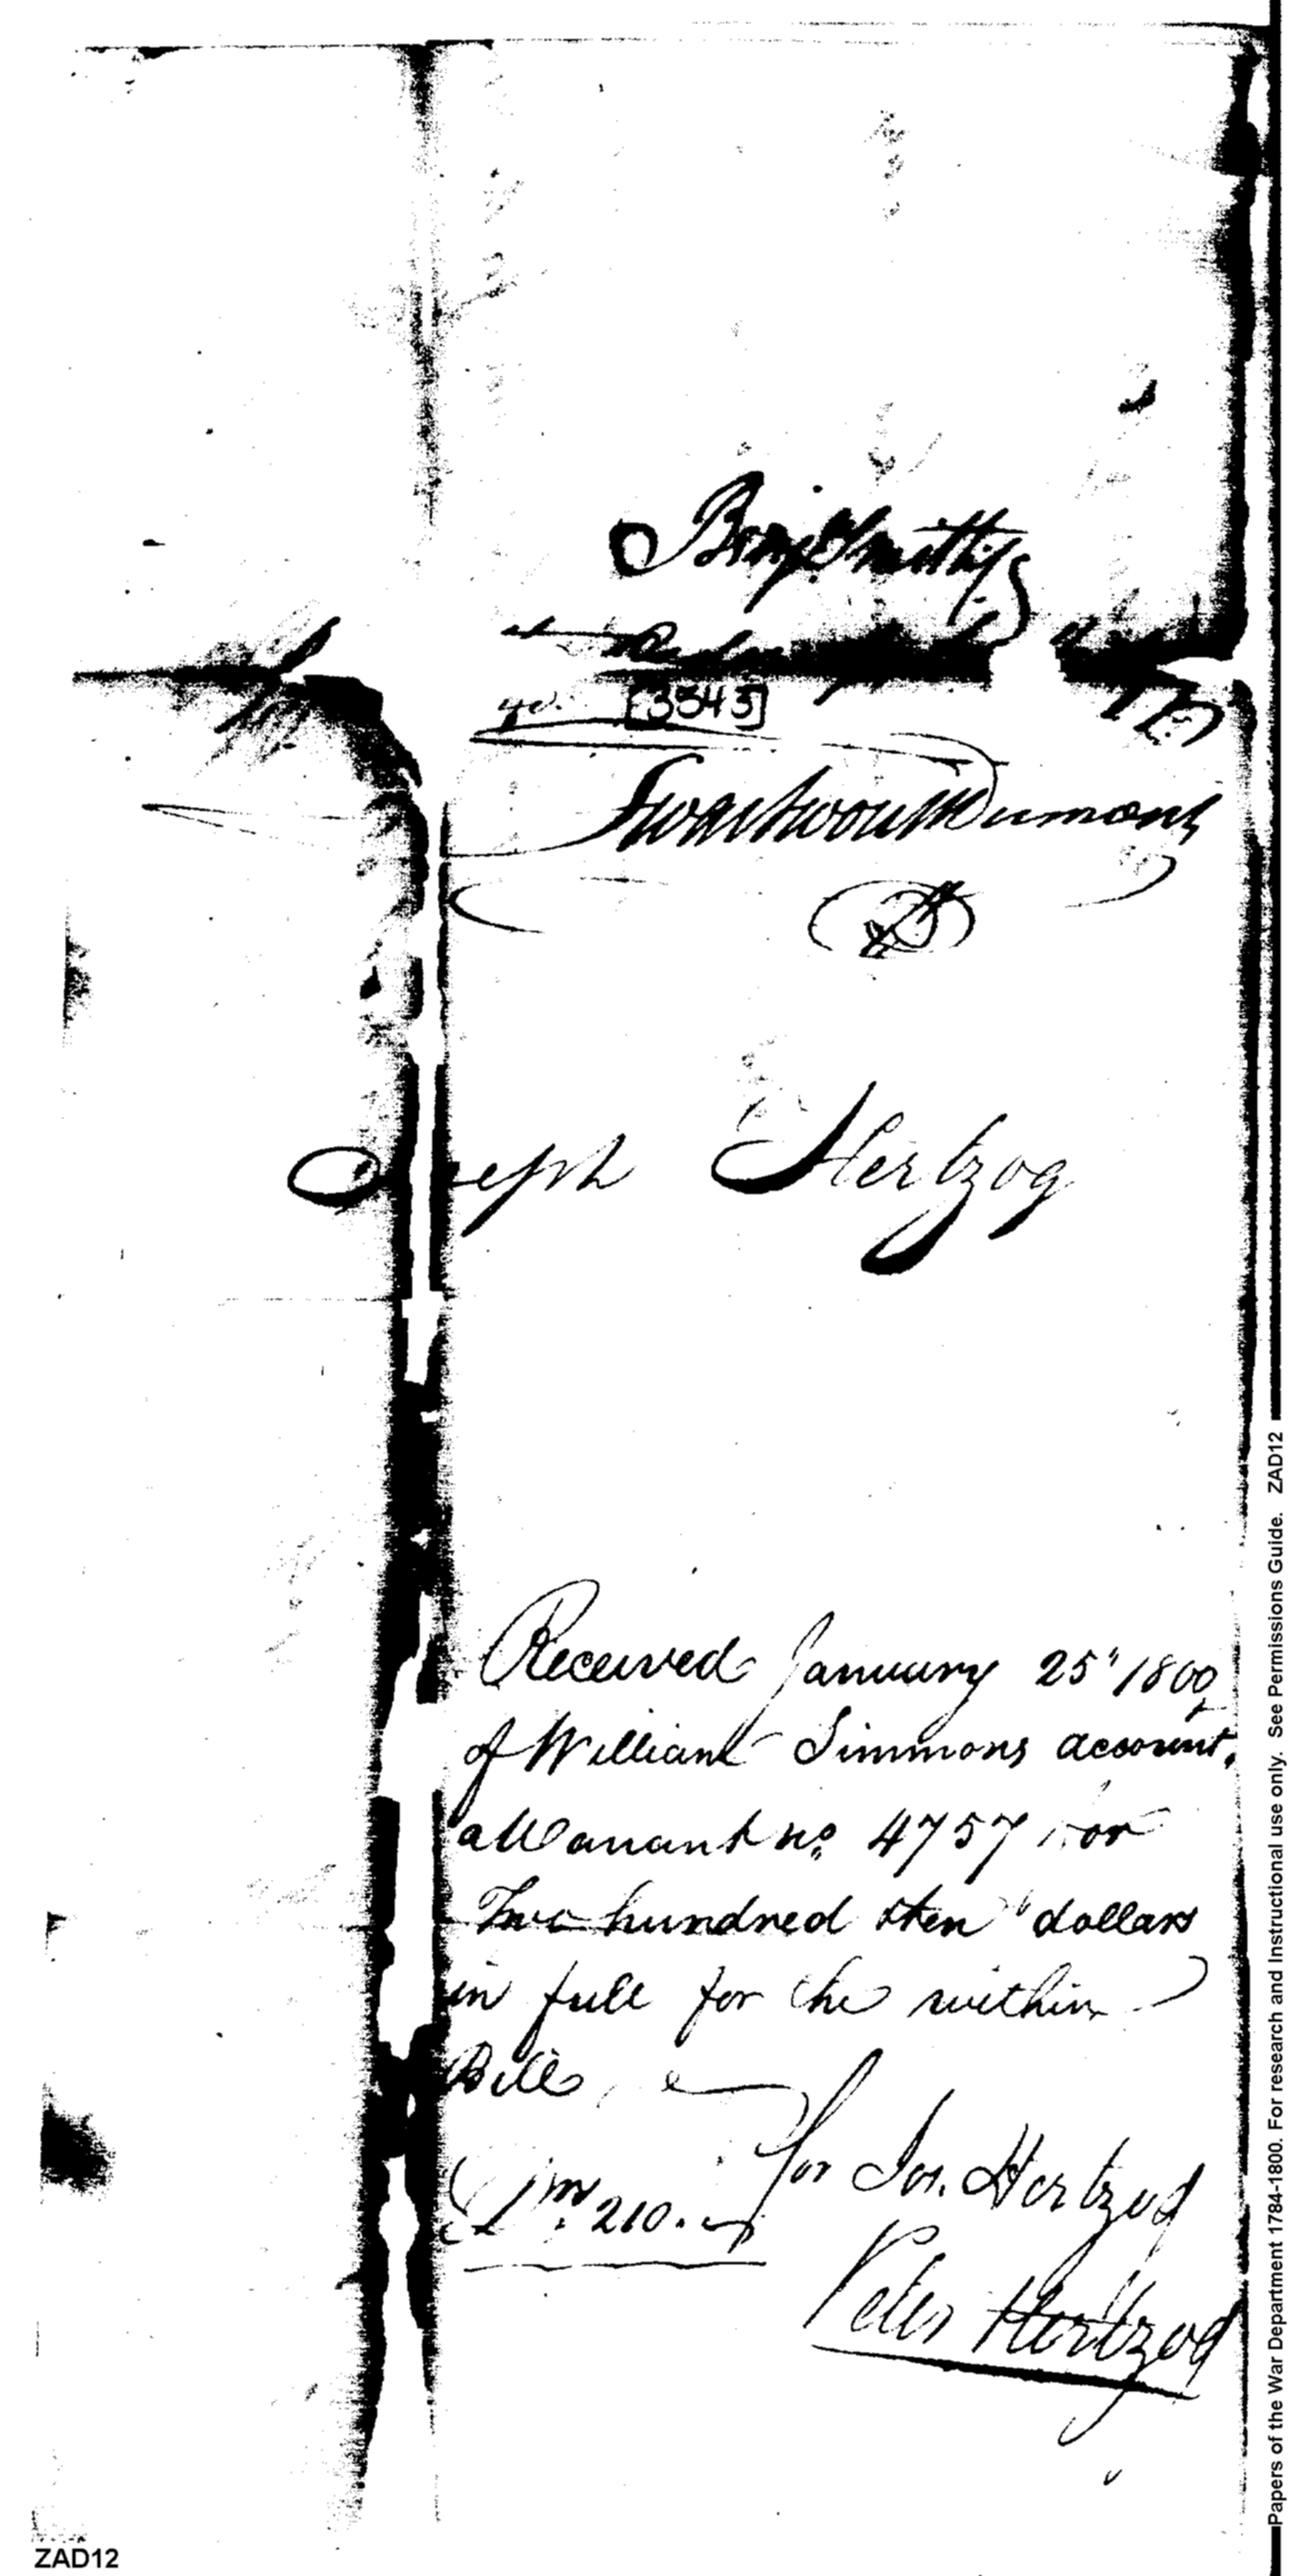 Benj Smith
[3543]
Swartwout & Dumont
Joseph Hertzog
Received January 25" 1800
of William Simmons account.
a Warrant no. 4757 for
Two hundred & ten dollars
in full for the within
Bill,
210.
for Jos. Hertzog
Peter Hertzog
Papers of the War Department 1784-1800. For research and Instructional use only. See Permissions Guide. ZAD12
ZAD12